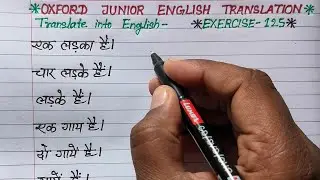 *OXFORD JUNIOR ENGLISH TRANSLATION*
Translate into English- *EXERCISE-125
एक लड़का है।
चार लड़के हैं।
लड़के हैं।
एक गाय है।
दो गायें हैं।